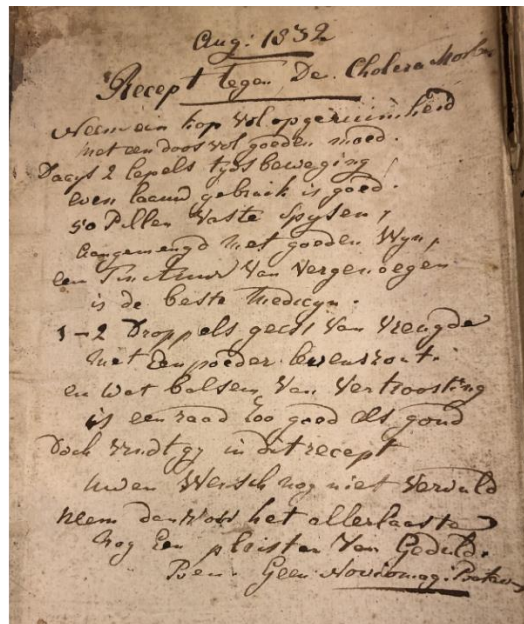 Aug: 1832
Recept tegen De Cholera Morb
Neem een kop vol opgeruimdheid
met een doos vol goeden moed.
Daags 2 lepels tydsbeweging
even laauw gebruik is goed.
50 Pillen Vaste Spysen,
Aangemengd met goeden Wyn,
een Tinctuur Van Vergenoegen
is de beste Medicyn.
1-2 Droppels geest Van Vreugde
met Een poeder levenszout.
en Wat balsem Van Vertroosting
is een raad Zoo goed als goud
Doch Vindt gy in dit recept
Uwen Wensch nog niet Vervuld
Neem dan het allerlaaste
nog Een pleister Van Geduld.
Geen